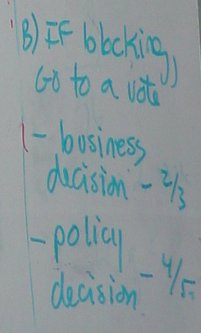 B) IF blocking,
Go to a vote
- business
decision - 2/3
- policy
decision - 4/5